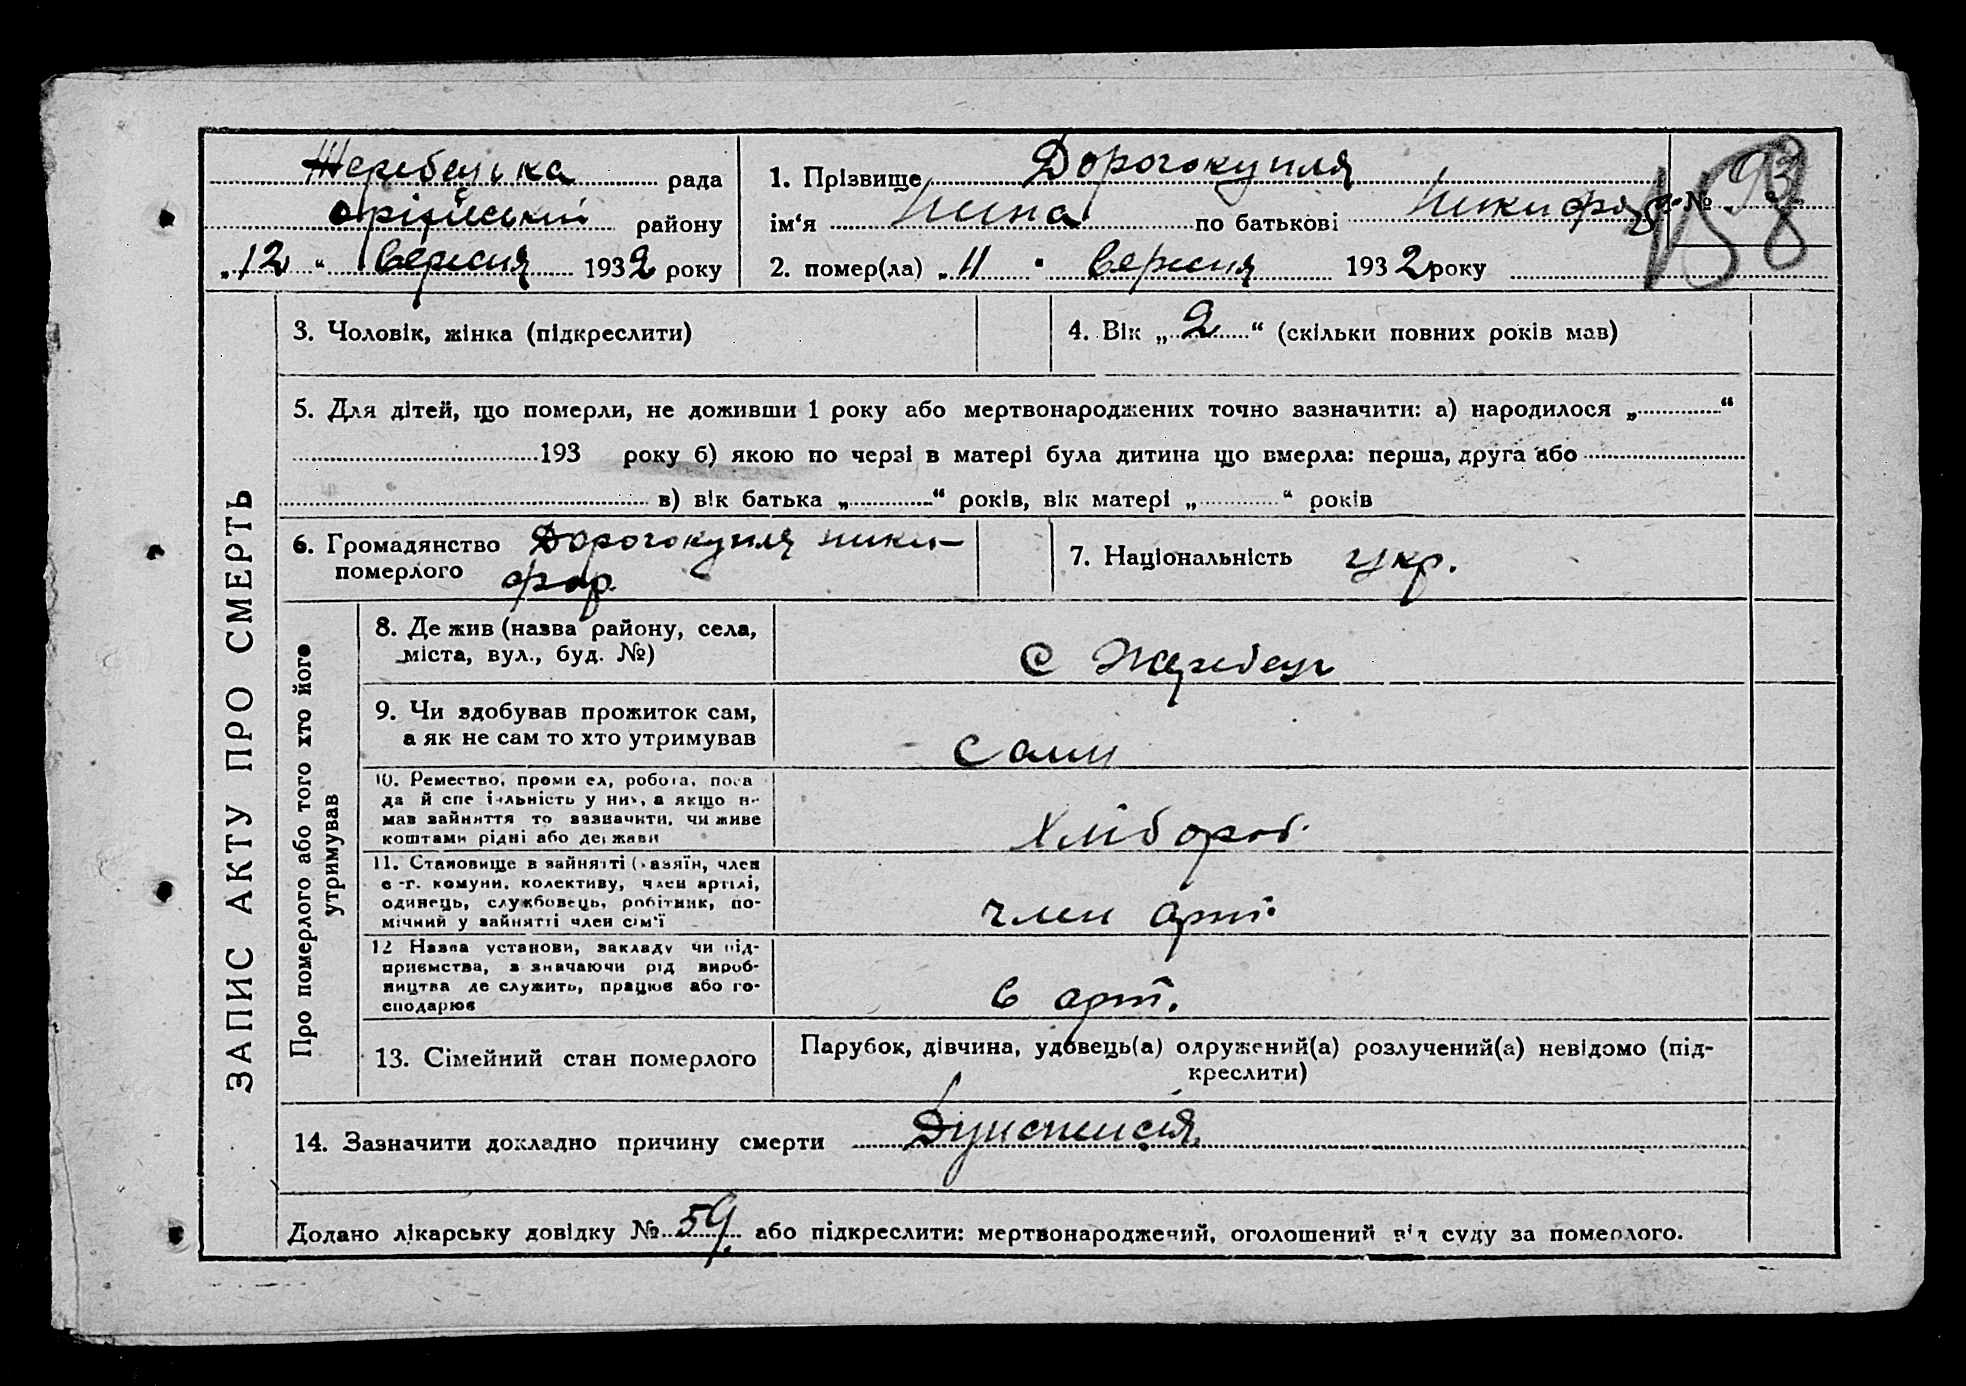 Жеребецька рада
оріхівській району
„12“ Вересня 1932 року
1. Прізвище Дорогокупля
ім‘я Нина по батькові Никифор. № 93
158
2. помер(ла) „11“ Вересня 1932 року
ЗАПИС АКТУ ПРО СМЕРТЬ
3. Чоловік, жінка (підкреслити)
4. Вік „2“ (скільки повних років мав)
5. Для дітей, що померли, не доживши 1 року або мертвонароджених точно зазначити: а) народилося „ “
193 року б) якою по черзі в матері була дитина що вмерла: перша, друга або
в) вік батька „ “ років, вік матері „ “ років
6. Громадянство Дорогокупля ники-
померлого фор.
7. Національність укр.
Про померлого або того хто його
утримував
8. Де жив (назва району, села,
міста, вул., буд. №)
с Жеребець
9. Чи здобував прожиток сам,
а як не сам то хто утримував
сами
10. Ремество, проми ел, робота, поса
да й спе іяльність у них, а якщо не
мав зайняття то зазначити, чи живе
коштами рідні або держави
Хлібороб.
11. Становище в зайнятті (хазяїн, член
с-г. комуни, колективу, член артілі,
одинець, службовець, робітник, по-
мічний у зайнятті член сім'ї
член арт.
12 Назва установи, закладу чи під-
приємства, зазначаючи рід вироб-
ництва де служить, працює або го-
сподарює
в арт.
13. Сімейний стан померлого
Парубок, дівчина, удовець(а) одружений(а) розлучений(а) невідомо (під-
креслити)
14. Зазначити докладно причину смерти Диспепсія
Додано лікарську довідку № 59 або підкреслити: мертвонароджений, оголошений від суду за померлого.